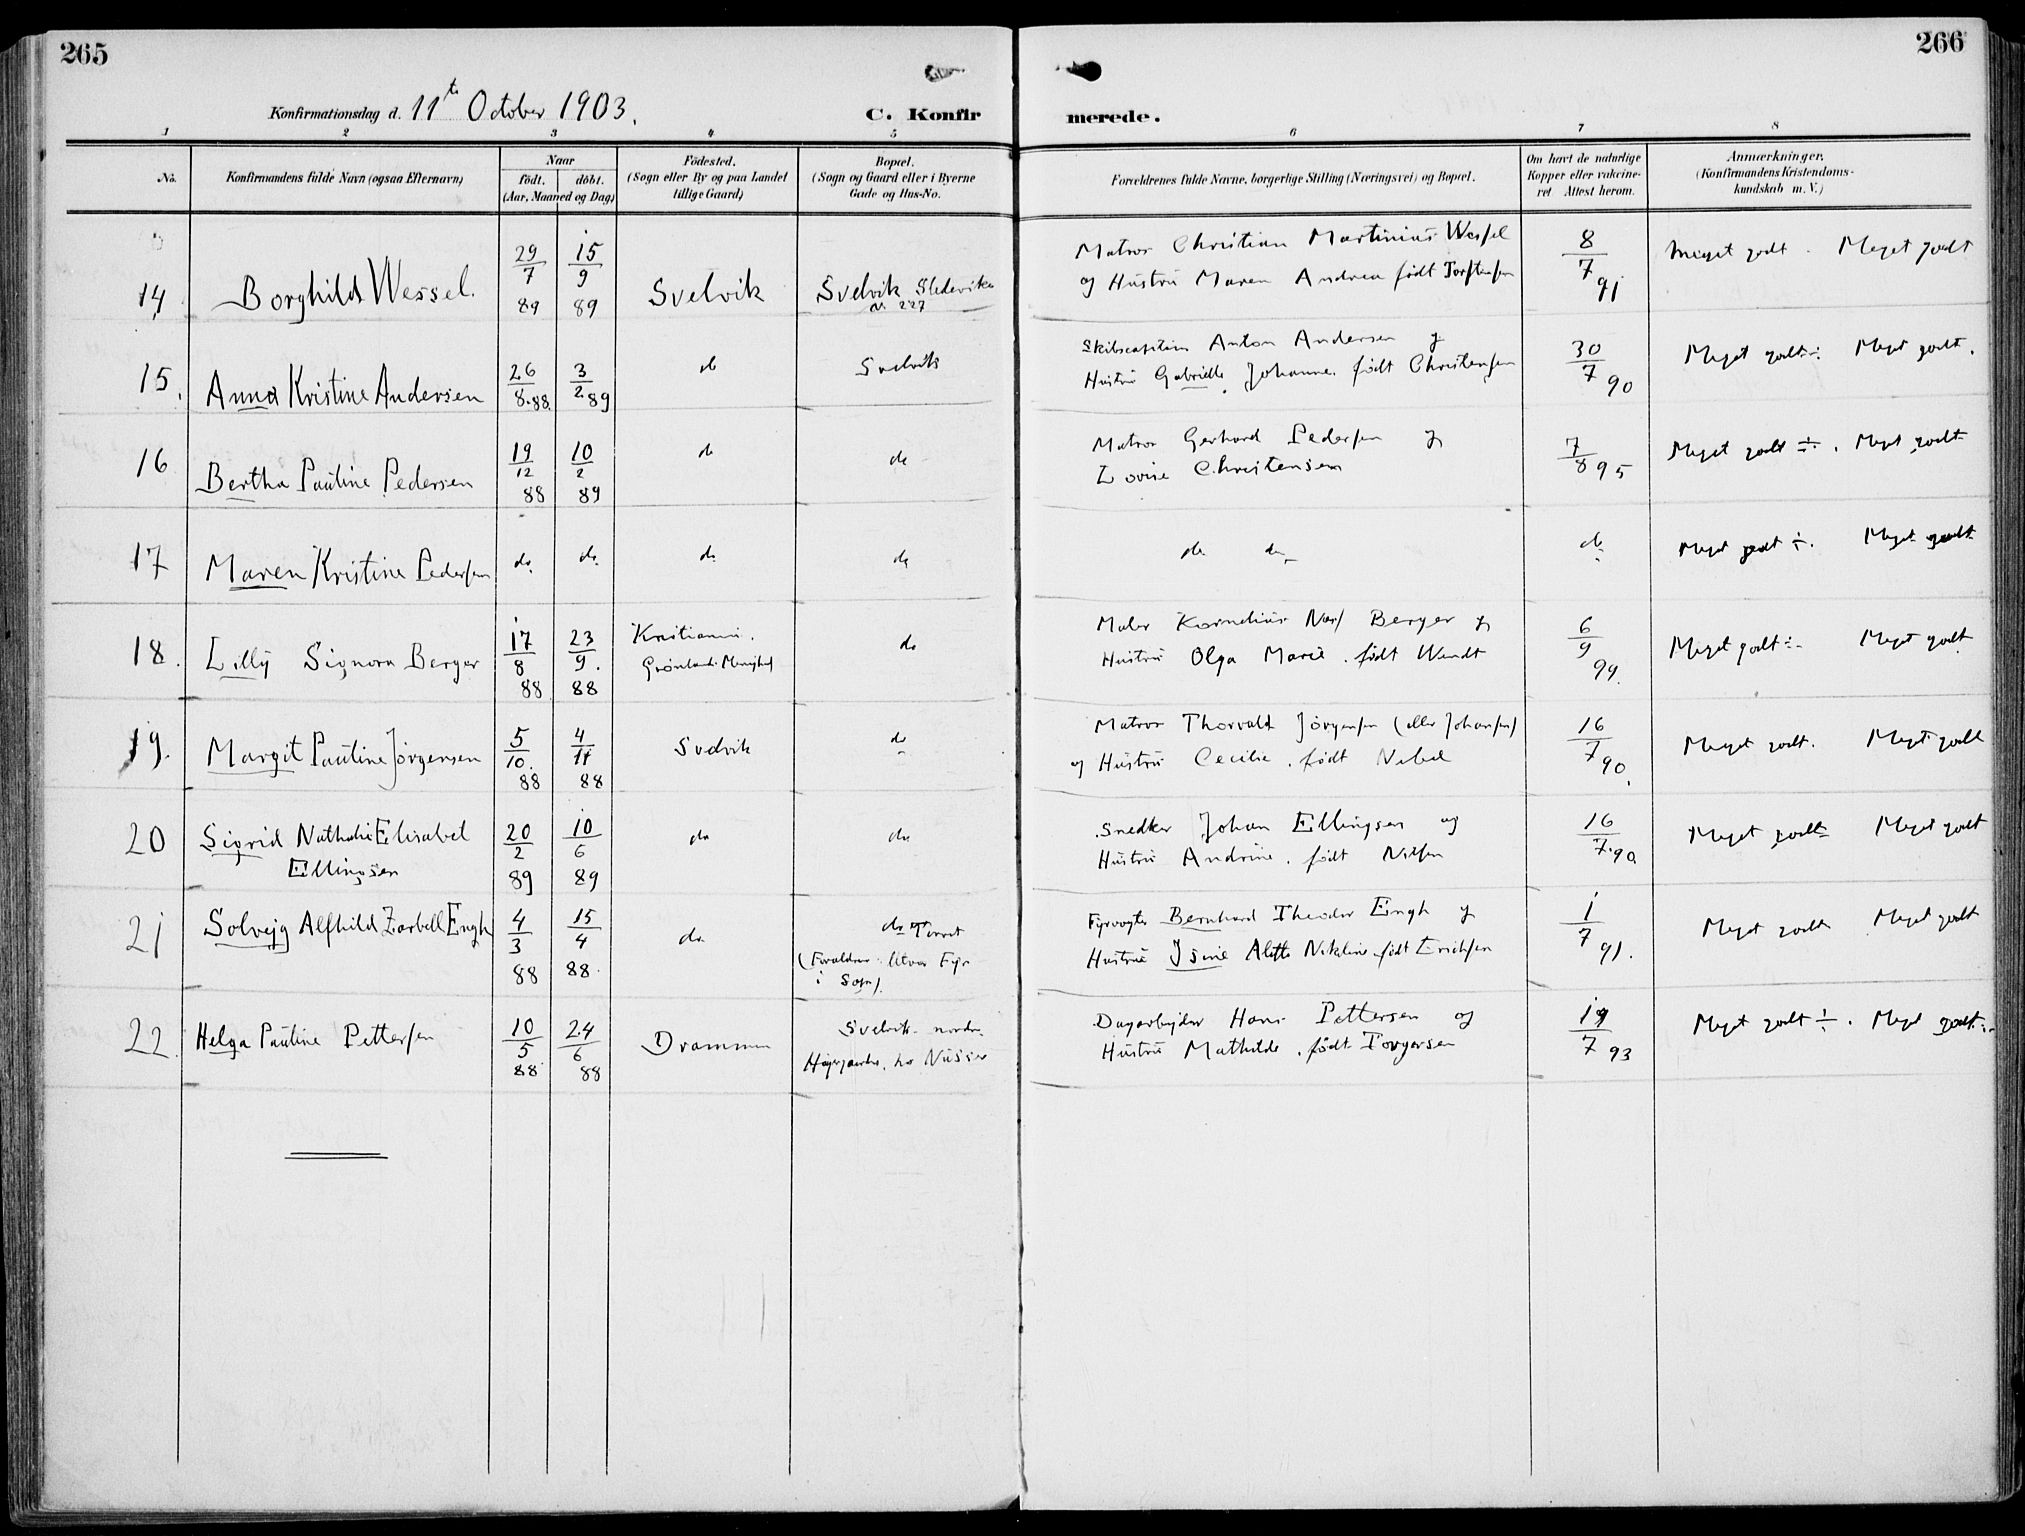 265
266
Konfirmationsdag d. 11te October 1903.
C. Konfirmerede.
1 2 3 4 5 6 7 8
No.
Konfirmandens fulde Navn (ogsaa Efternavn)
Naar
født. døbt.
(Aar, Maaned og Dag)
Fødested.
(Sogn eller By og paa Landet
tillige Gaard)
Bopæl.
(Sogn og Gaard eller i Byerne
Gade og Hus-No.
Forældrenes fulde Navne, borgerlige Stilling (Næringsvei) og Bopæl.
Om havt de naturlige
Kopper eller vakcine-
ret Attest herom.
Anmærkninger.
(Konfirmandens Kristendoms-
kundskab m. V.)
14. Borghild Wessel. 29/7 89 15/9 89 Svelvik Svelvik
No 227
Matros Christian Martinius Wessel
og Hustru Maren Andrea født Torstensen
8/7 91 Meget godt. Meget godt
15. Anna Kristine Andersen 26/8.88. 3/2.89 do Svelvik
Skibscaptein Anton Andersen og
Hustru Gabrielle Johanne. født Christensen
30/7 90 Meget godt÷. Meget godt.
16 Bertha Pauline Pedersen 19/12 88 10/2 89 do do
Matros Gerhard Pedersen og
Lovise Christensen
7/8 95 Meget godt ÷. Meget godt
17 Maren Kristine Pedersen do. do. do. do
do do
do Meget godt ÷. Meget godt
18. Lilly Signora Berger 17/8 88 23/9. 88 Kristiania.
Grønlands Menighed
do
Maler Kornelius Berger og
Hustru Olga Marie. født Wendt
6/9 99. Meget godt÷. Meget godt
19. Margit Pauline Jørgensen 5/10. 88 4/11 88 Svelvik do
Matros Thorvald Jørgensen (eller Johansen)
og Hustru Cecilie. født
16/7 90. Meget godt. Meget godt
20 Sigrid Nathalie Elisabet
Ellingsen
20/2 89 10/6 89 do do
Snedker Johan Ellingsen og
Hustru Andrine. født Nilsen
16/7.90. Meget godt Meget godt
21 Solvejg Alfhild Zarbell Engh 4/3 88 15/4 88. do. do
(Forældre: Utvær Fyr
i Sogn).
Fyrvogter Bernhard Theodor Engh og
Hustru Jsine Alette Nikoline født Erichsen
1/7 91. Meget godt Meget godt
22. Helga Pauline Pettersen 10/5 88 24/6 88 Drammen Svelvik nordre
hos
Dagarbejder Hans Pettersen og
Hustru Mathilde. født Torgersen
19/7 93 Meget godt ÷. Meget godt÷